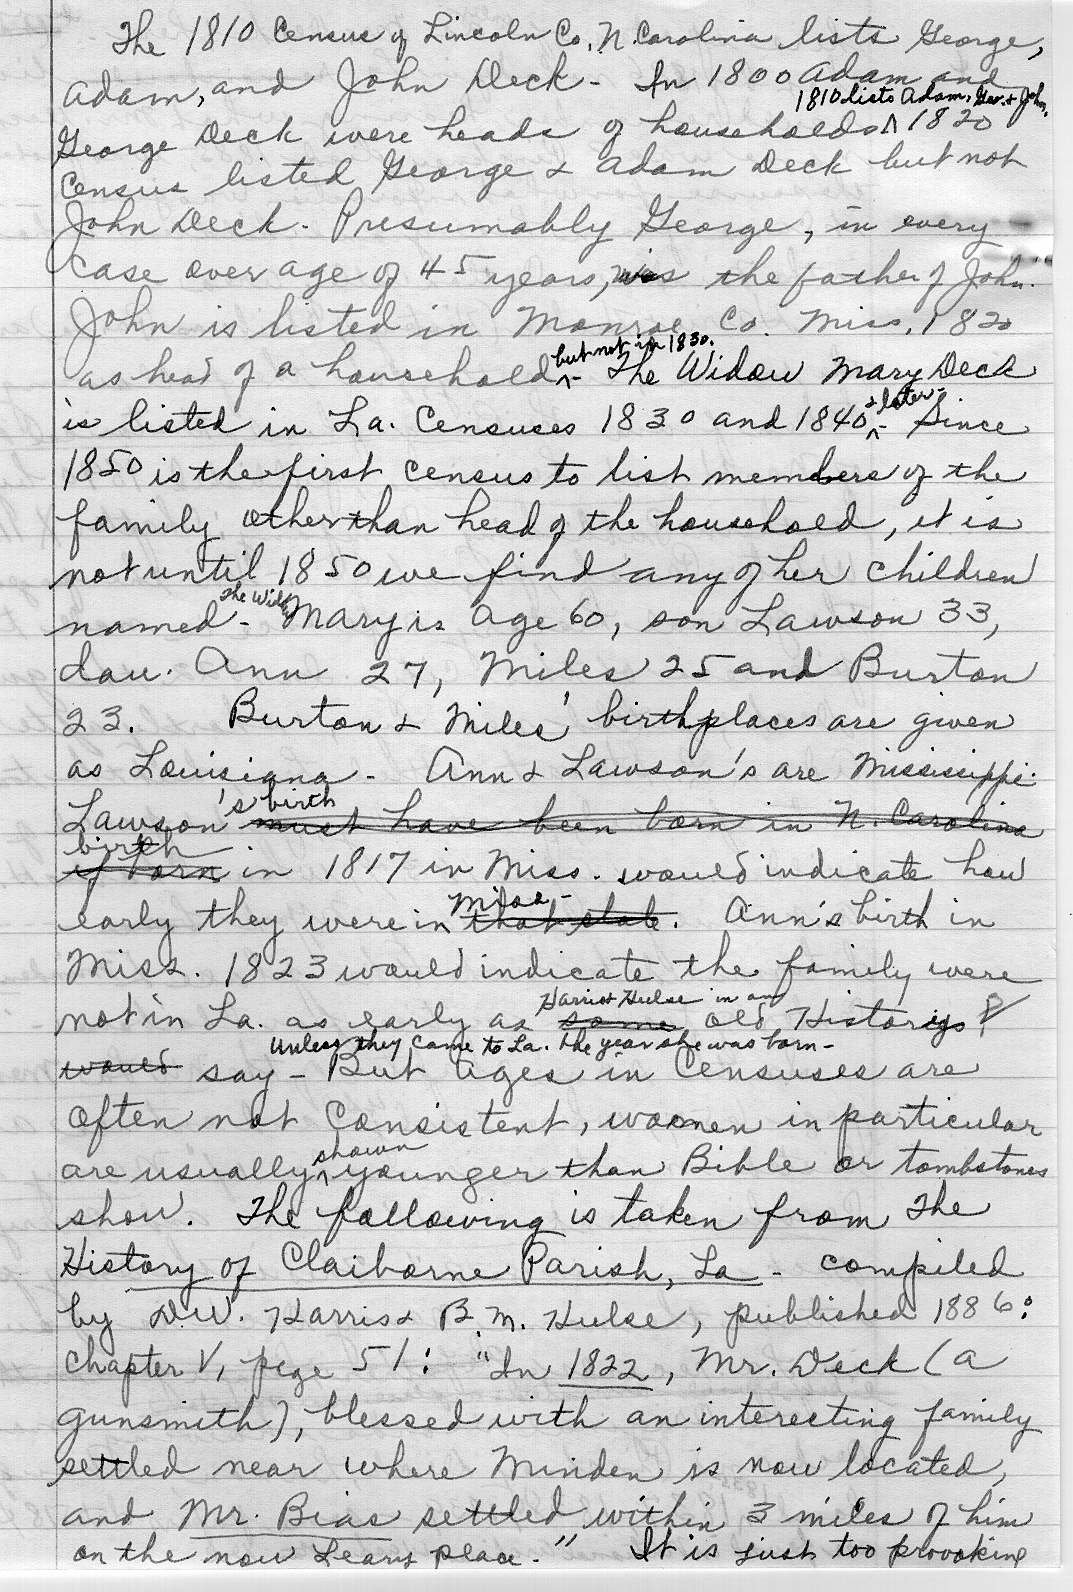 The 1810 Census of Lincoln Co, N. Carolina lists George,
Adam, and John Deck - In 1800 Adam and
1810 lists Adam, Geo. & John.
George Deck were heads of households ^ 1820
Census listed George & Adam Deck but not
John Deck. Presumably George, in every
case over age of 45 years, was the father of John.
John is listed in Monroe Co. Miss, 1820
but not in 1830.
as head of a household ^ - The Widow Mary Deck
& later -
is listed in La. Censuses 1830 and 1840 ^ - Since
1850 is the first census to list members of the
family other than head of the household, it is
not until 1850 we find any of her children
The Wid.
named - Mary is age 60, son Lawson 33,
dau. Ann 27, Miles 25 and Burton
23. Burton & Miles' birthplaces are given
as Louisiana - Ann & Lawson's are Mississippi.
's birth
Lawson must have been born in N. Carolina
birth
if born in 1817 in Miss. would indicate how
Miss -
early they were in that state. Ann's birth in
Miss. 1823 would indicate the family were
Harris & Hulse in an
not in La. as early as some old Historys
Unless they came to La. the year she was born -
would say - But ages in Censuses are
often not consistent, women in particular
shown
are usually ^ younger than Bible or tombstones
show. The following is taken from The
History of Claiborne Parish, La - compiled
by D.W. Harris & B.M. Hulse, published 1886:
Chapter V, page 51: "In 1822, Mr. Deck (a
gunsmith), blessed with an interecting family
settled near where Minden is now located,
and Mr. Bias settled within 3 miles of him
on the now Leary place." It is just too provoking